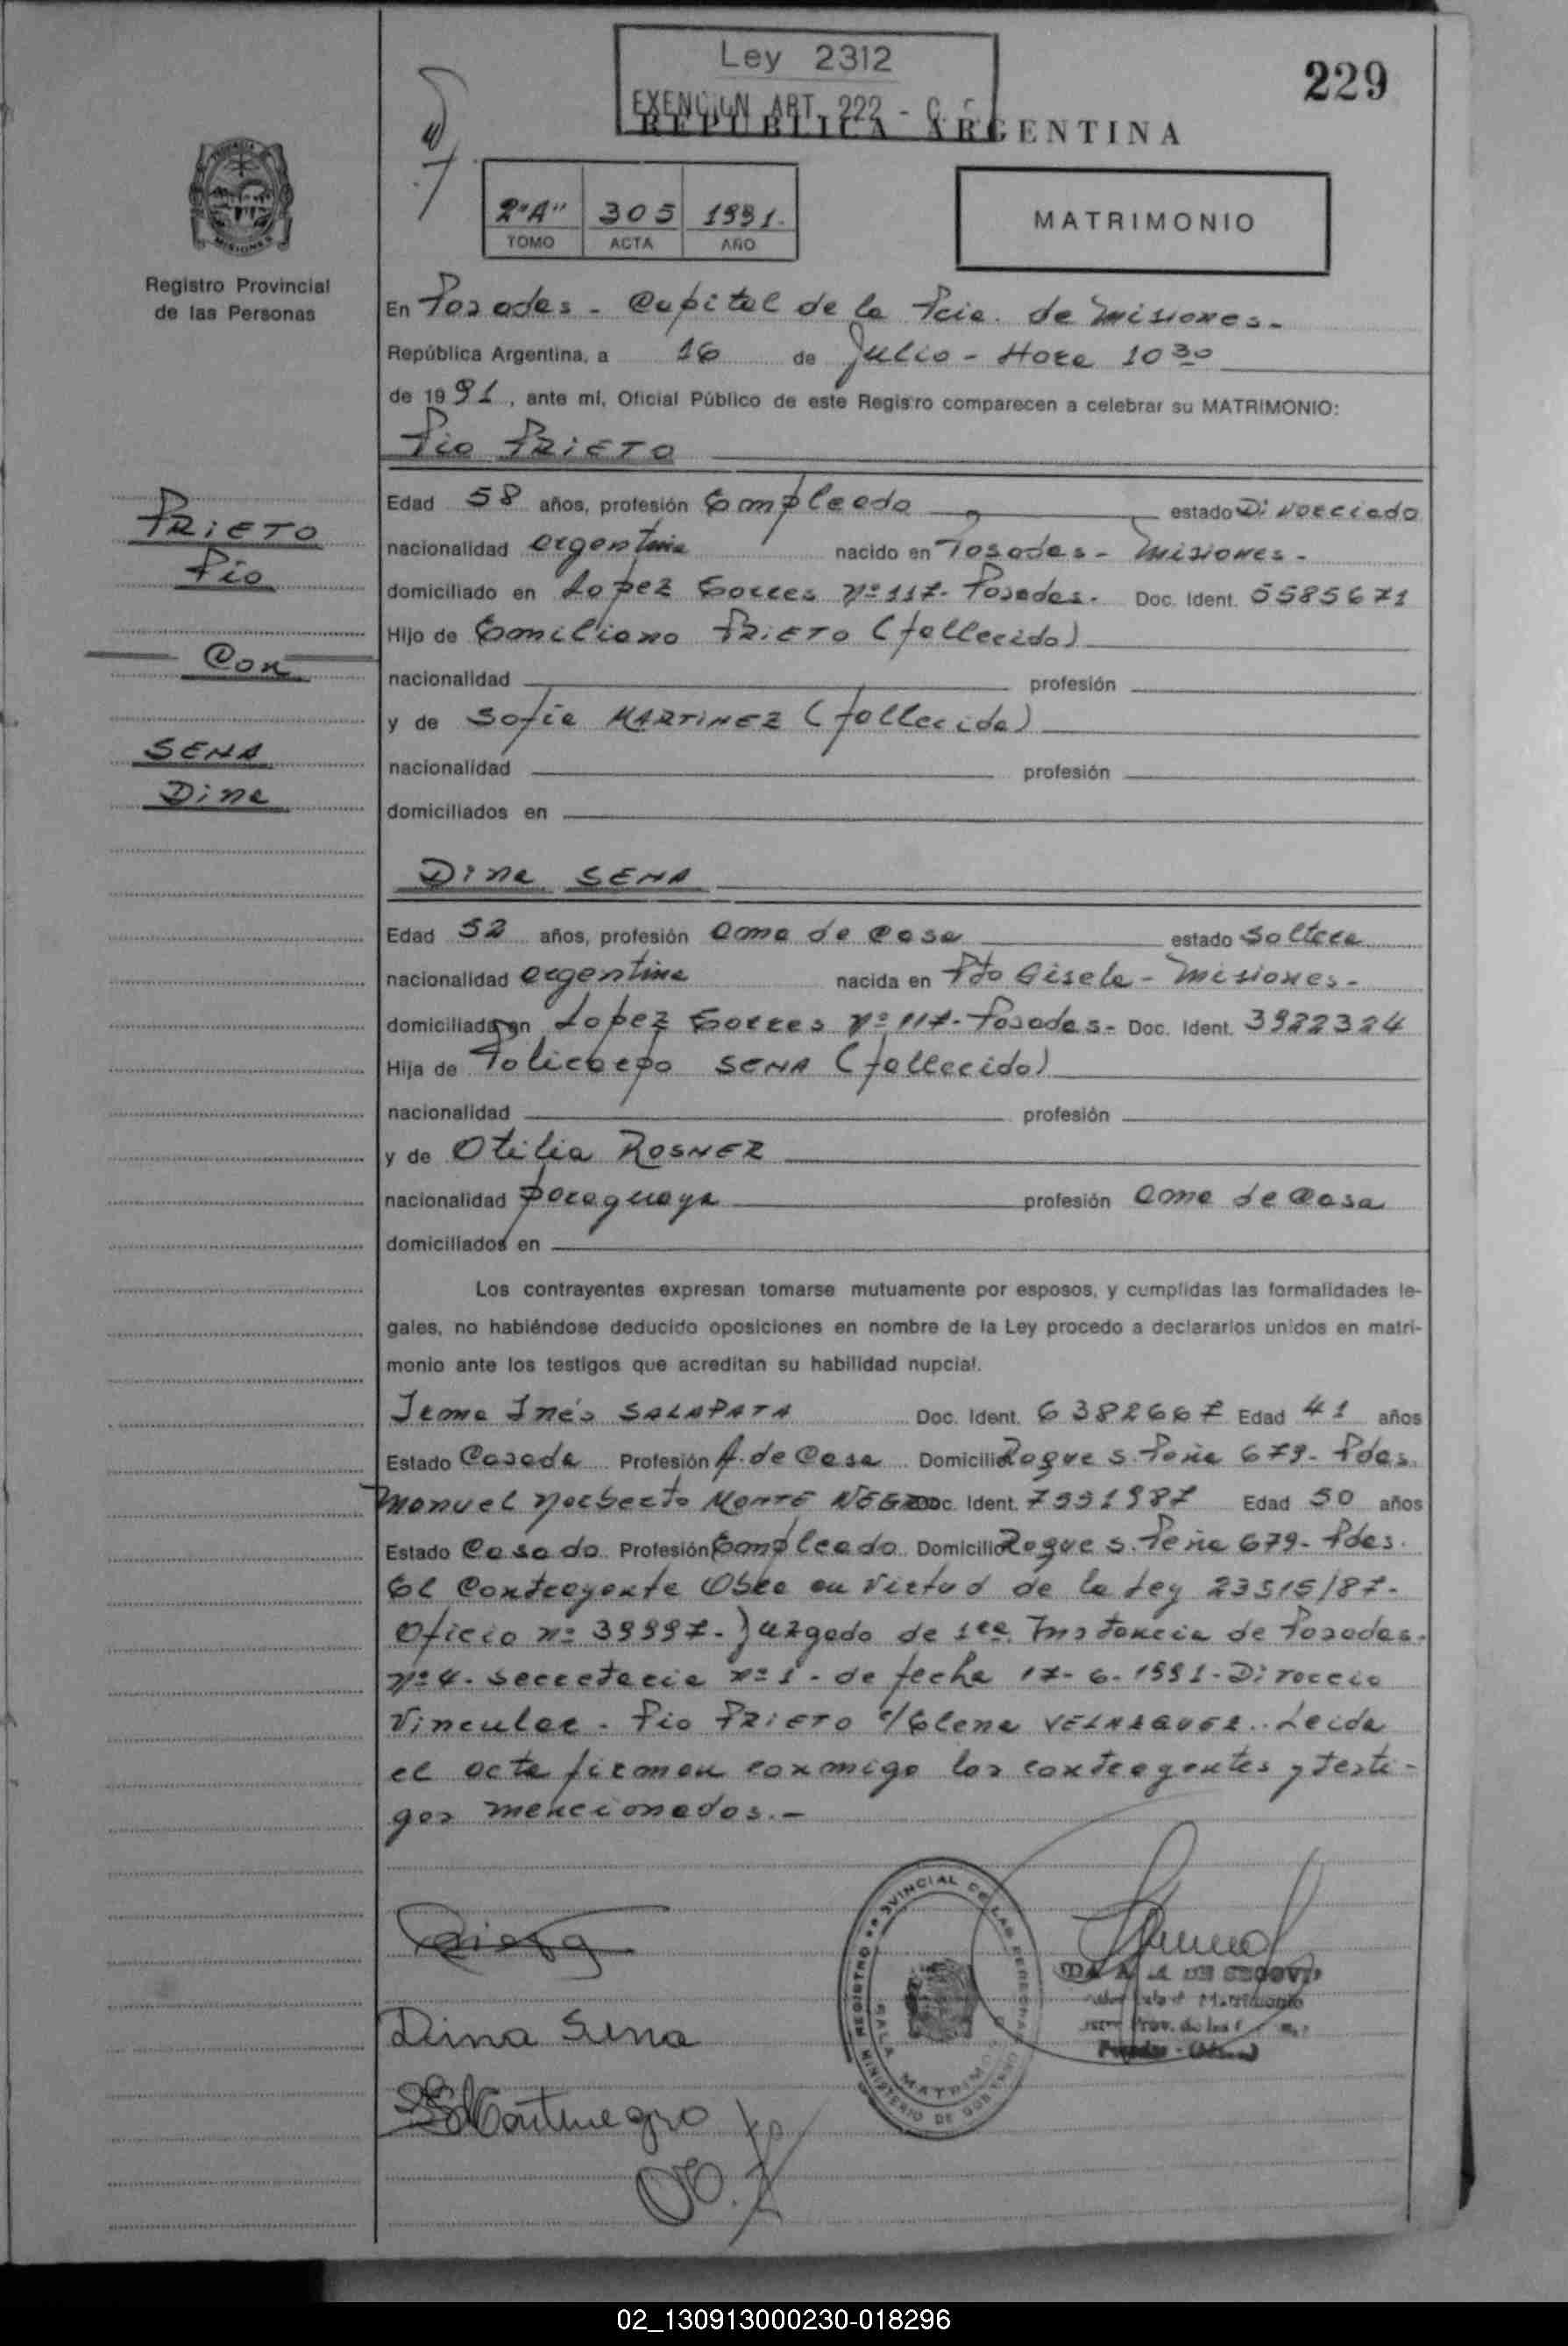 Ley 2312
EXENCION ART. 222 - C. C.
229
REPUBLICA ARGENTINA
MISIONES
Registro Provincial
de las Personas
2"A" 305 1991.
TOMO ACTA AÑO
MATRIMONIO
En Posadas - Capital de la Pcia. de Misiones.-
República Argentina, a 16 de Julio - Hora 10 30
de 1991, ante mi, Oficial Público de este Registro comparecen a celebrar su MATRIMONIO:
Pio PRIETO
PRIETO
Pio
Con
SENA
Dina
Edad 58 años, profesión Empleado estado Divorciado
nacionalidad argentina nacido en Posadas - Misiones -
domiciliado en Lopez Torres Nº 117- Posadas- Doc. Ident. 5585671
Hijo de Emiliano PRIETO (fallecido)
nacionalidad profesión
y de Sofia MARTINEZ (fallecida)
nacionalidad profesión
domiciliados en
Dina SENA
Edad 52 años, profesión ama de casa estado Soltera
nacionalidad argentina nacida en Pto Gisela - Misiones -
domiciliada en Lopez Torres Nº 117- Posadas- Doc. Ident. 3922324
Hija de Policarpo SENA (fallecido)
nacionalidad profesión
y de Otilia ROSNER
nacionalidad paraguaya profesión ama de casa
domiciliados en
Los contrayentes expresan tomarse mutuamente por esposos, y cumplidas las formalidades le-
gales, no habiéndose deducido oposiciones en nombre de la Ley procedo a declararlos unidos en matri-
monio ante los testigos que acreditan su habilidad nupcial.
Irma Inés SALAPATA Doc. Ident. 6382667 Edad 41 años
Estado Casada Profesión A. de Casa Domicilio Roque S. Peña 679- Pdas.
Manuel Norberto MONTE NEGRO Doc. Ident. 7551987 Edad 50 años
Estado Casado Profesión Empleado Domicilio Roque S. Peña 679- Pdas.
El Contrayente Obra en Virtud de la Ley 23515/87-
Oficio nº 39997- Juzgado de 1ra. Instancia de Posadas-
Nº 4- Secretaria nº 1 - de fecha 17-6-1991- Divorcio
Vincular - Pio PRIETO c/Elena VELAZQUEZ.. Leida
el acta firman conmigo los contrayentes y testi-
gos mencionados.-
REGISTRO PROVINCIAL DE LAS PERSONAS
SALA MATRIMONIO
MINISTERIO DE GOBIERNO
DE SEGOVIA
Matrimonio
Prov. de las
Dina Sena
Montenegro
02_130913000230-018296